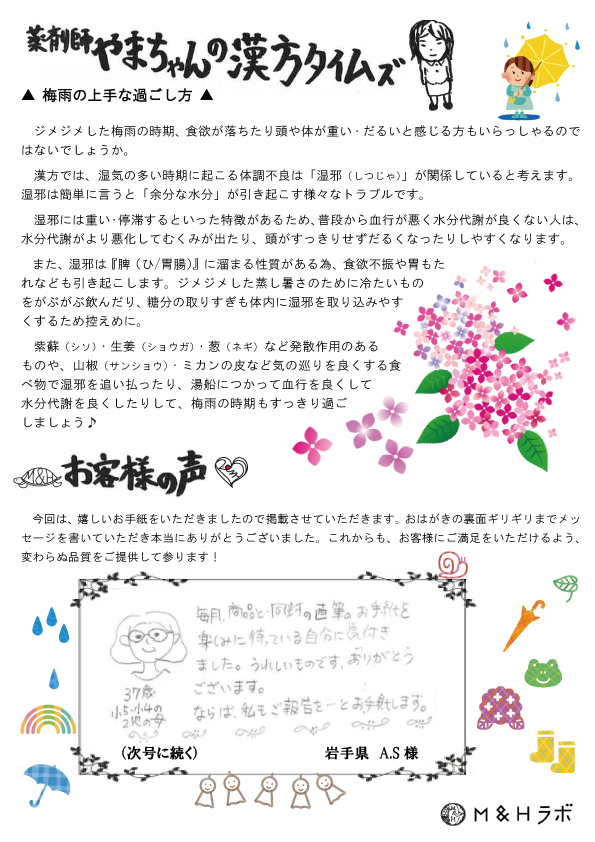 薬剤師やまちゃんの漢方タイムズ
▲ 梅雨の上手な過ごし方 ▲
ジメジメした梅雨の時期、食欲が落ちたり頭や体が重い・だるいと感じる方もいらっしゃるので
はないでしょうか。
漢方では、湿気の多い時期に起こる体調不良は「湿邪（しつじゃ）」が関係していると考えます。
湿邪は簡単に言うと「余分な水分」が引き起こす様々なトラブルです。
湿邪には重い・停滞するといった特徴があるため、普段から血行が悪く水分代謝が良くない人は、
水分代謝がより悪化してむくみが出たり、頭がすっきりせずだるくなったりしやすくなります。
また、湿邪は『脾（ひ/胃腸）』に溜まる性質がある為、食欲不振や胃もた
れなども引き起こします。ジメジメした蒸し暑さのために冷たいもの
をがぶがぶ飲んだり、糖分の取りすぎも体内に湿邪を取り込みやす
くするため控えめに。
紫蘇（シソ）・生姜（ショウガ）・葱（ネギ）など発散作用のある
ものや、山椒（サンショウ）・ミカンの皮など気の巡りを良くする食
べ物で湿邪を追い払ったり、湯船につかって血行を良くして
水分代謝を良くしたりして、梅雨の時期もすっきり過ご
しましょう♪
M&H
お客様の声
今回は、嬉しいお手紙をいただきましたので掲載させていただきます。おはがきの裏面ギリギリまでメッ
セージを書いていただき本当にありがとうございました。これからも、お客様にご満足をいただけるよう、
変わらぬ品質をご提供して参ります！
毎月、商品と同封の直筆のお手紙を
楽しみに待っている自分に気付き
ました。うれしいものです。ありがとう
ございます。
ならば、私もご報告を…とお手紙します。
37歳
小5・小4の
2児の母
（次号に続く）
岩手県 A.S 様
M&Hラボ